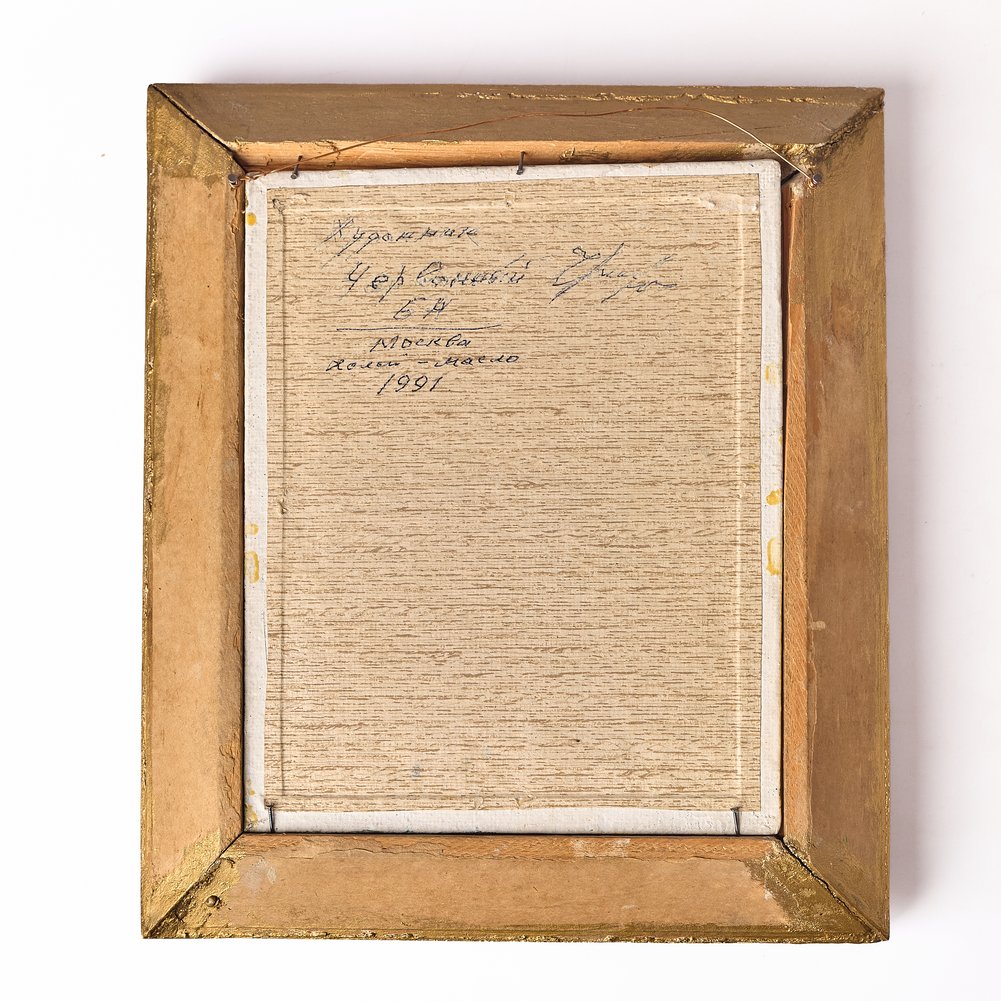 Художник
Червонный
БА
Москва
холст - масло
1991